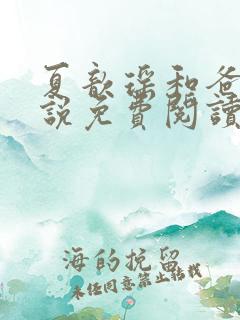 夏歆瑶和爸
說免費閱讀
海的挽留
未经同意禁止转载